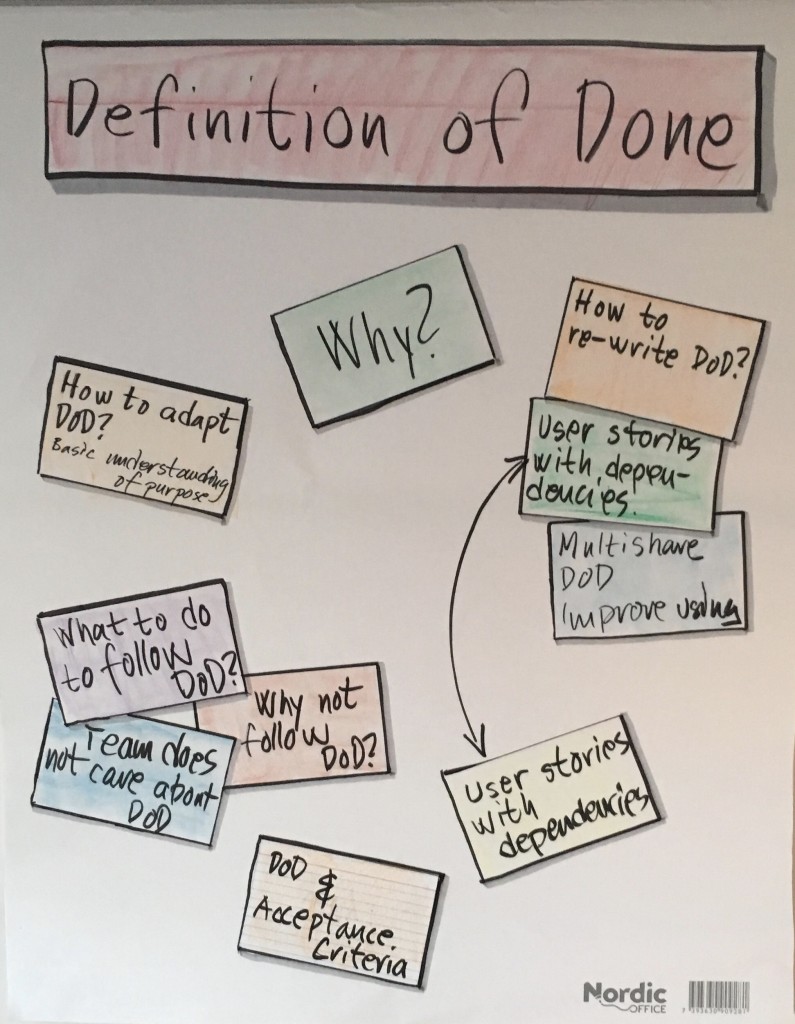 Definition of Done
Why?
How to
re-write DoD?
User stories
with depen-
dencies.
Multishare
DOD
Improve using
How to adapt
DOD?
Basic understanding
of purpose
What to do
to follow
DoD?
Why not
follow
DoD?
Team does
not care about
DOD
User stories
with
dependencies
DoD
&
Acceptance
Criteria
Nordic
OFFICE